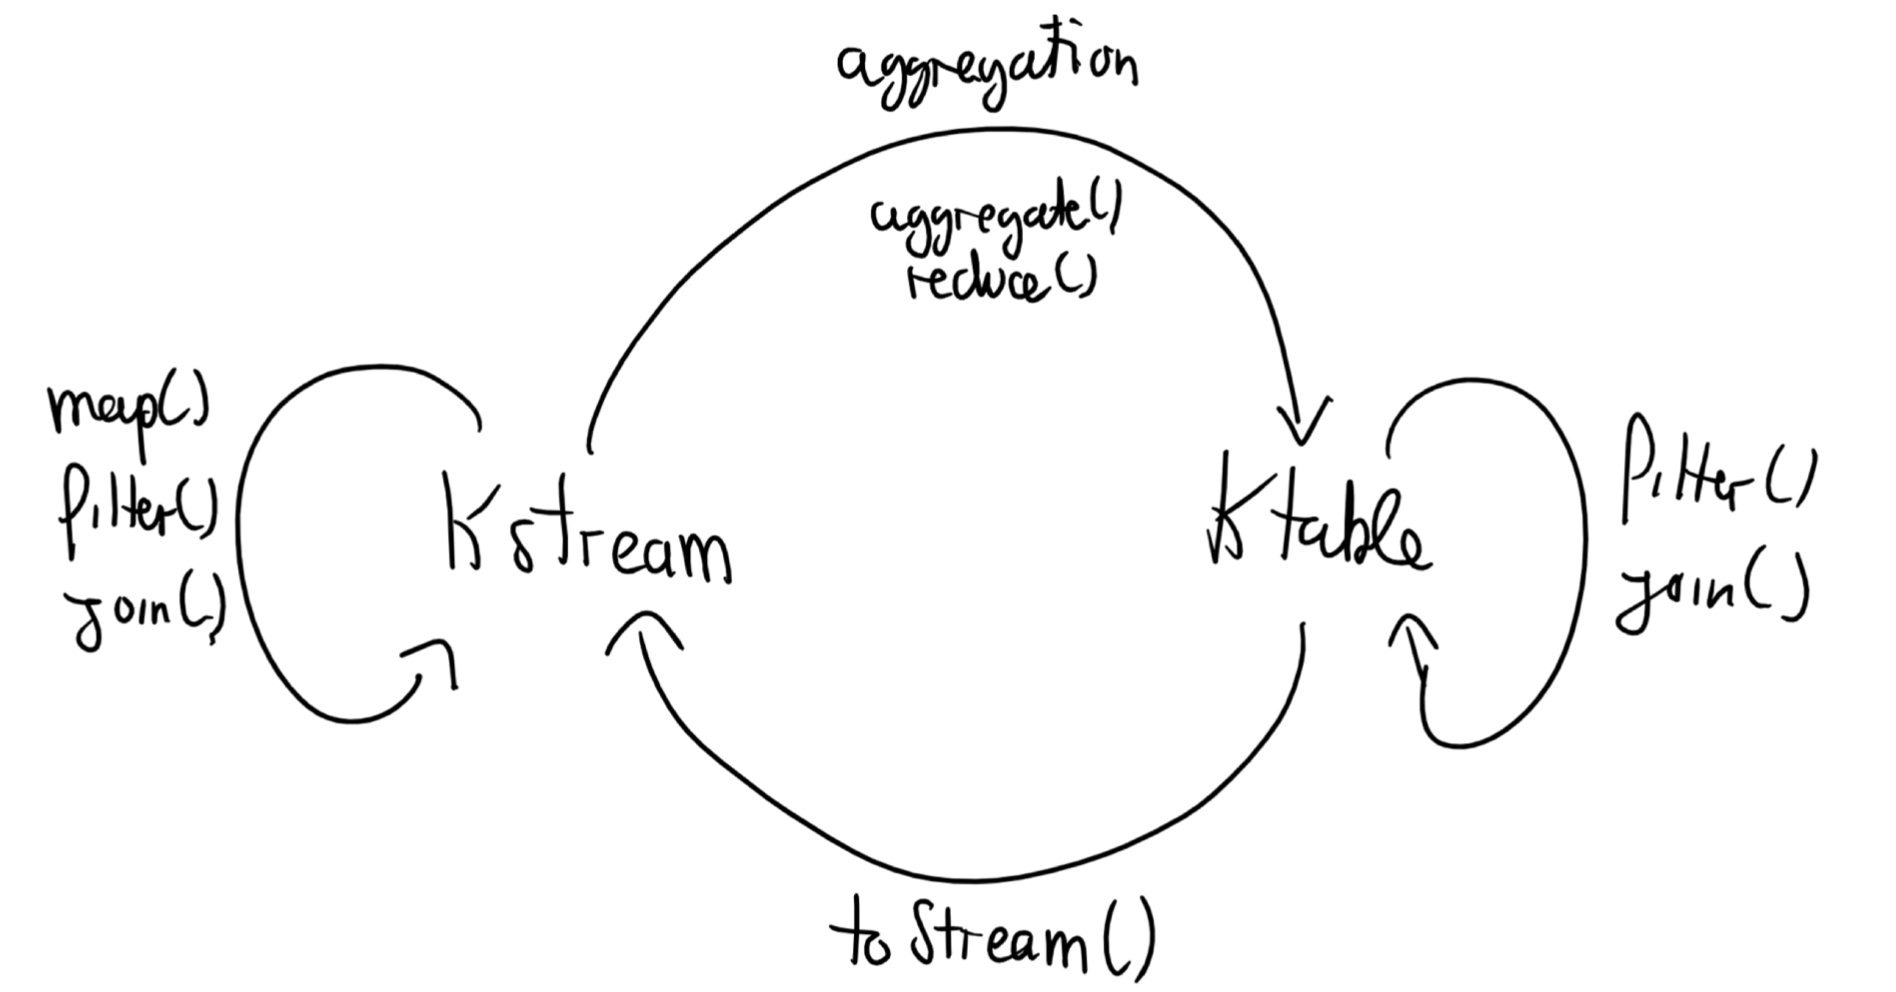 aggregation
aggregate()
reduce()
map()
filter()
join()
Kstream
Ktable
filter()
join()
toStream()